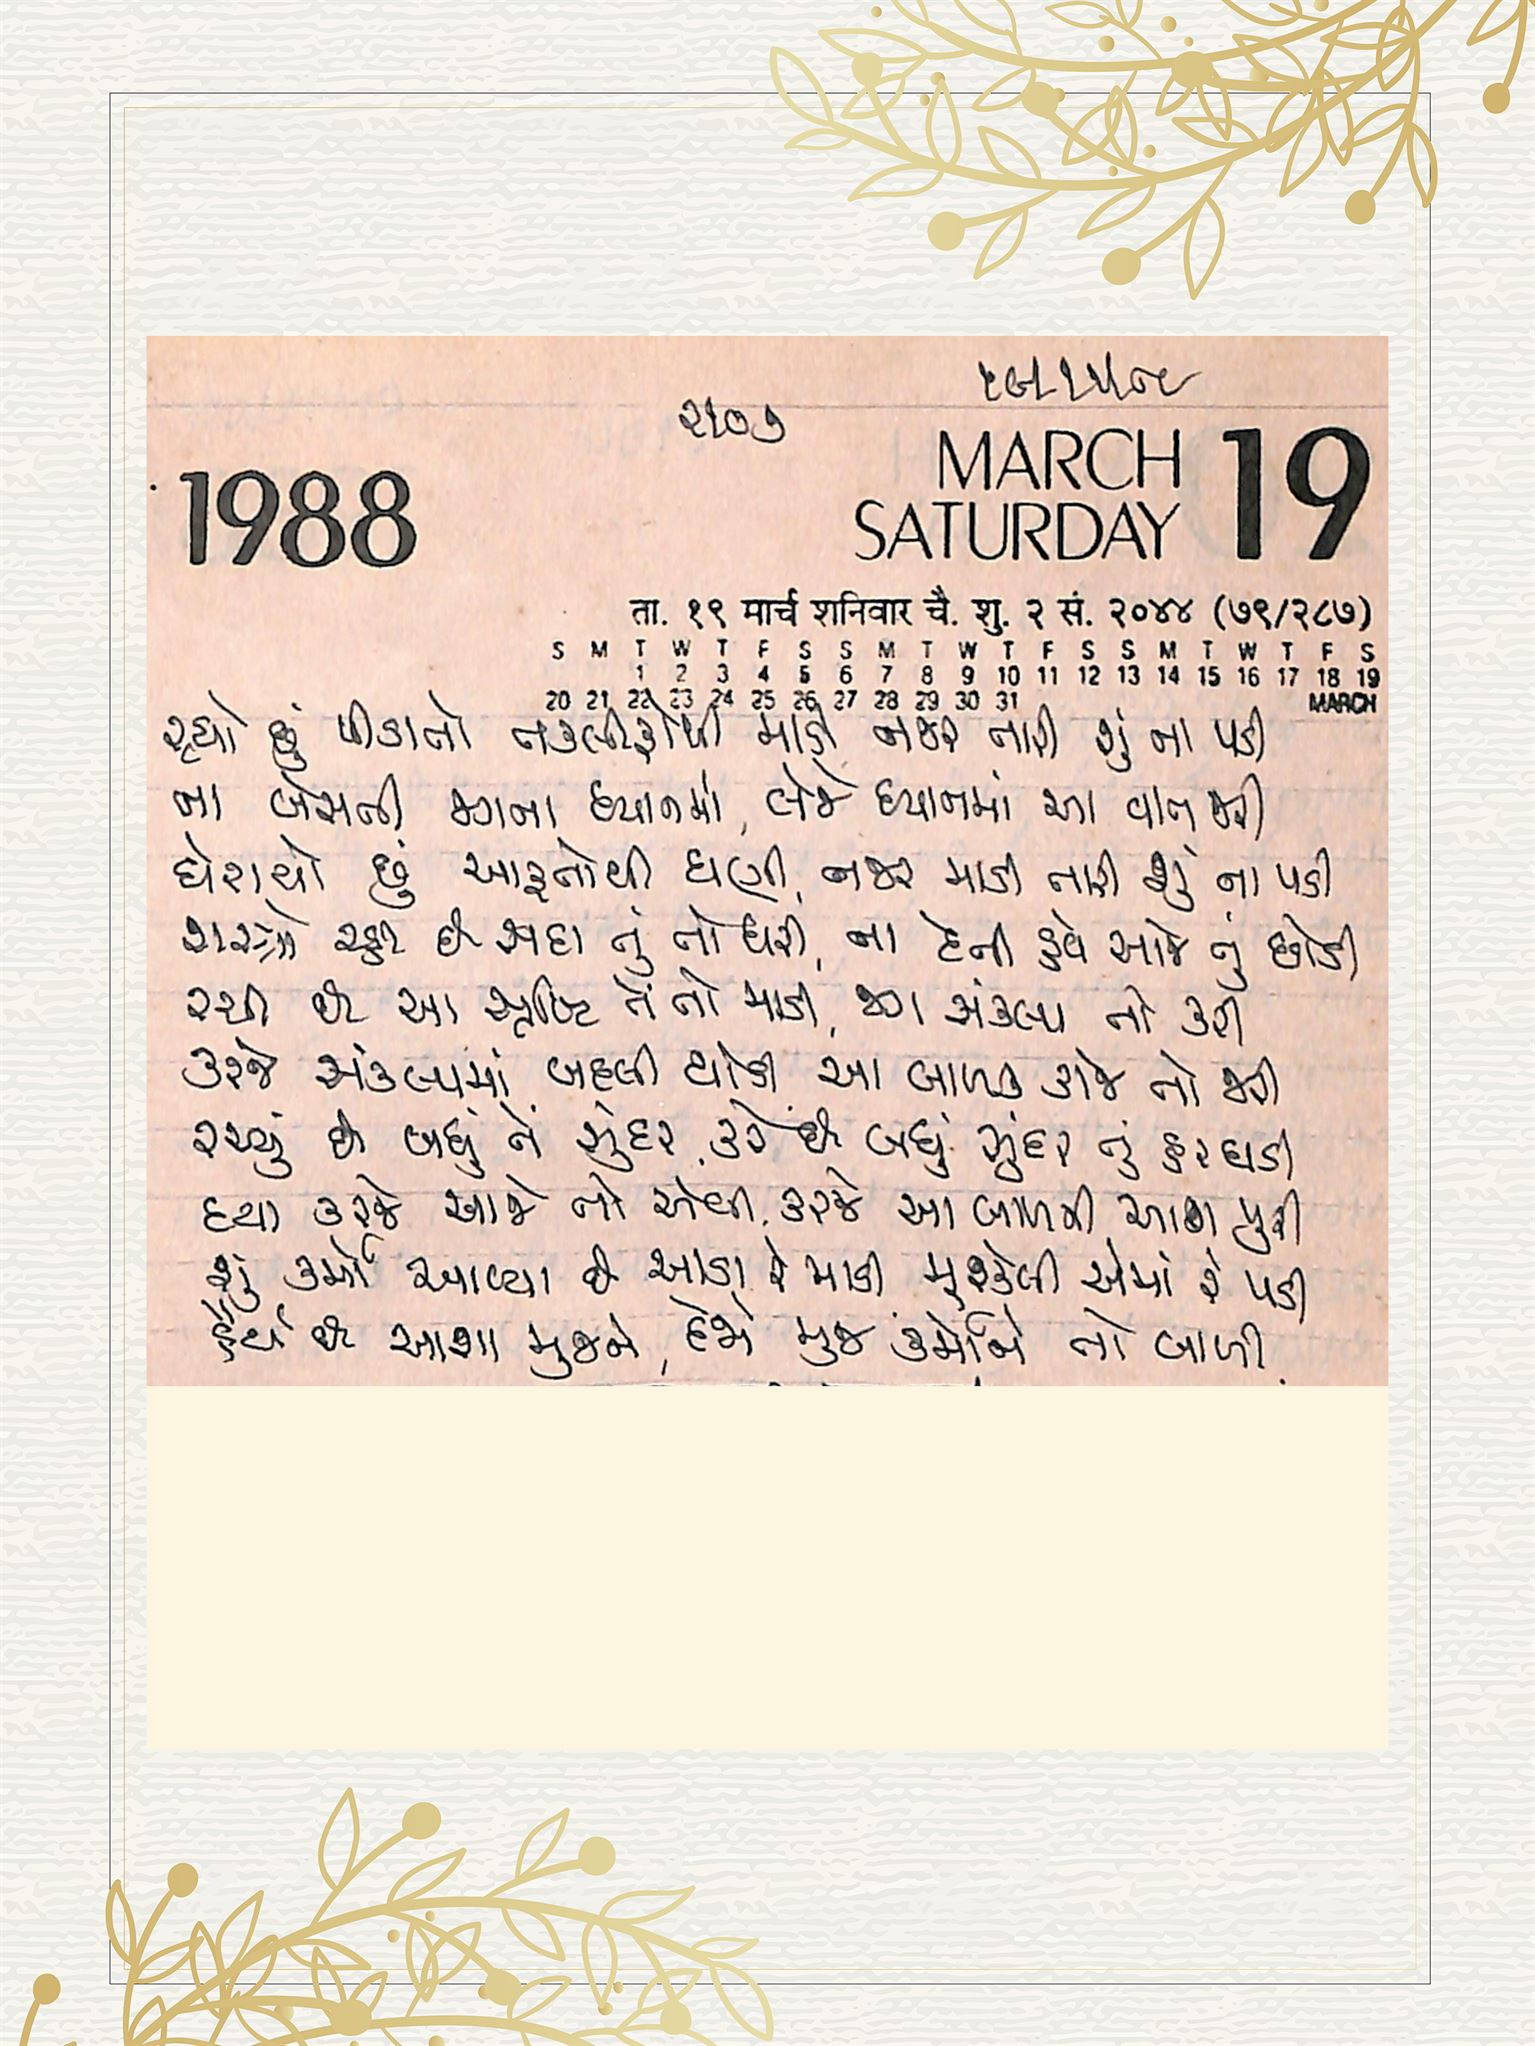 ૨૧૦૭
1988
MARCH 19
SATURDAY
ता. १९ मार्च शनिवार चै. शु. २ सं. २०४४ (७९/२८७)
S M T W T F S S M T W T F S S M T W T F S
1 2 3 4 5 6 7 8 9 10 11 12 13 14 15 16 17 18 19
20 21 22 23 24 25 26 27 28 29 30 31 MARCH
રહ્યો છું પીડાતો તકલીફોથી માડી નજર તારી શું ના પડી
ના બેસતી જગના ધ્યાનમાં, લેજે ધ્યાનમાં આ વાત જરી
ઘેરાયો છું આફતોથી ઘણી, નજર માડી તારી શું ના પડી
શસ્ત્રો છે સદા તું તો ધરી, ના દેતી હવે આજે તું છોડી
રચી છે આ સૃષ્ટિ તેં તો માડી, જગ સંકલ્પ તો કરી
કરજે સંકલ્પમાં બદલી થોડી આ બાળક કાજે તો જરી
રચ્યું છે બધું તેં સુંદર, કરે છે બધું સુંદર તું હર ઘડી
દયા કરજે આજે તો એવી, કરજે આ બાળની આશ પુરી
શું કર્મો આવ્યા છે આડા રે માડી મુશ્કેલી એમાં રે પડી
હૈયે છે આશા મુજને, દેજે મુજ કર્મોને તો બાળી